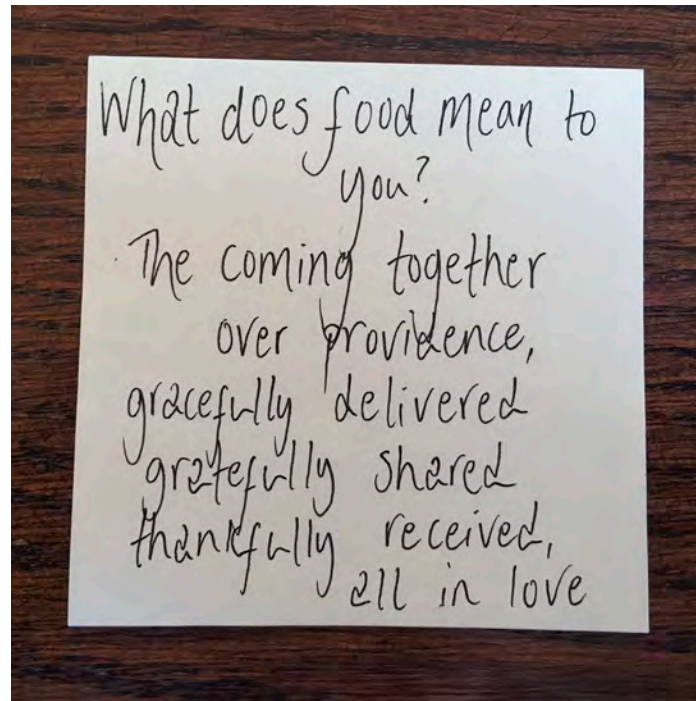 What does food mean to
you?
The coming together
over providence,
gracefully delivered
gratefully shared
thankfully received,
all in love